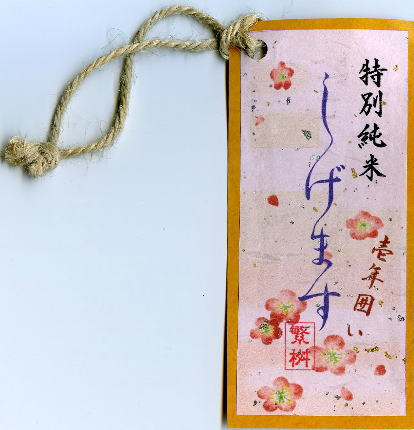 特別純米
しげます
壱年囲い
繁桝